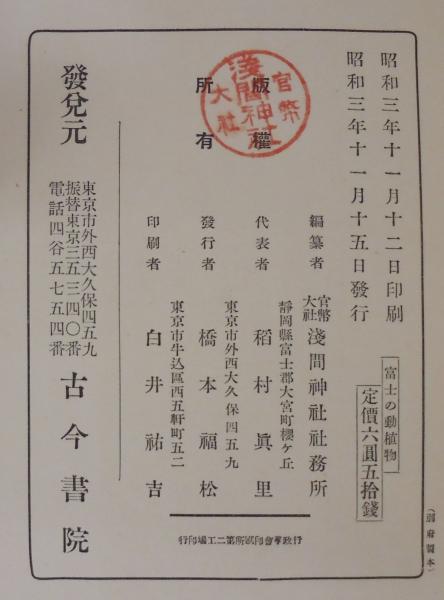 昭和三年十一月十二日印刷
昭和三年十一月十五日發行
富士の動植物
定價六圓五拾錢
版權
所有
官幣
大社
淺間神社
編纂者
官幣
大社
淺間神社社務所
靜岡縣富士郡大宮町櫻ヶ丘
代表者
稻村眞里
東京市外西大久保四五九
發行者
橋本福松
東京市牛込區西五軒町五二
印刷者
白井祐吉
發兌元
東京市外西大久保四五九
振替東京三五三四〇番
電話四谷五七五四番
古今書院
行政學會印刷所第二工場印行
(別府製本)